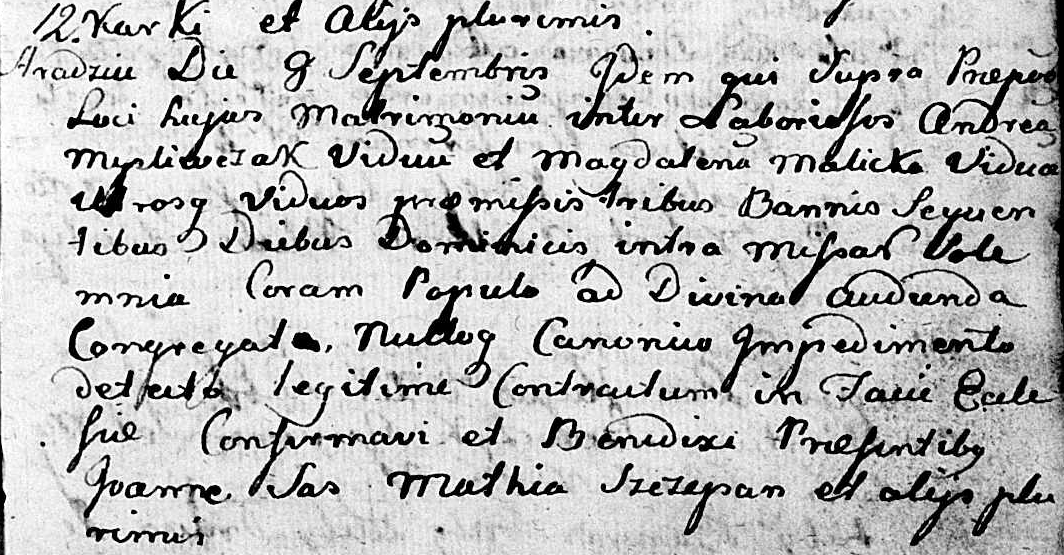 12. Karki et Alijs plurimis.
Hradziu Die 9 Septembris Idem qui Supra Prepos
Loci hujus Matrimoniu inter Laboriosos Andreã
Mysliwczak Viduũ et Magdalenã Malicka Viduã
utrosq Viduos præmissis tribus Bannis Sequen
tibus Diebus Dominicis intra Missar Sole
mnia Coram Populo ad Divina audienda
Congregato, Nulloq Canonico Impedimento
detecto legitime Contractum in Facie Eccle
siæ Confirmavi et Benedixi Præsentibq
Joanne Sas Mathia Szczepan et alijs plu
rimis